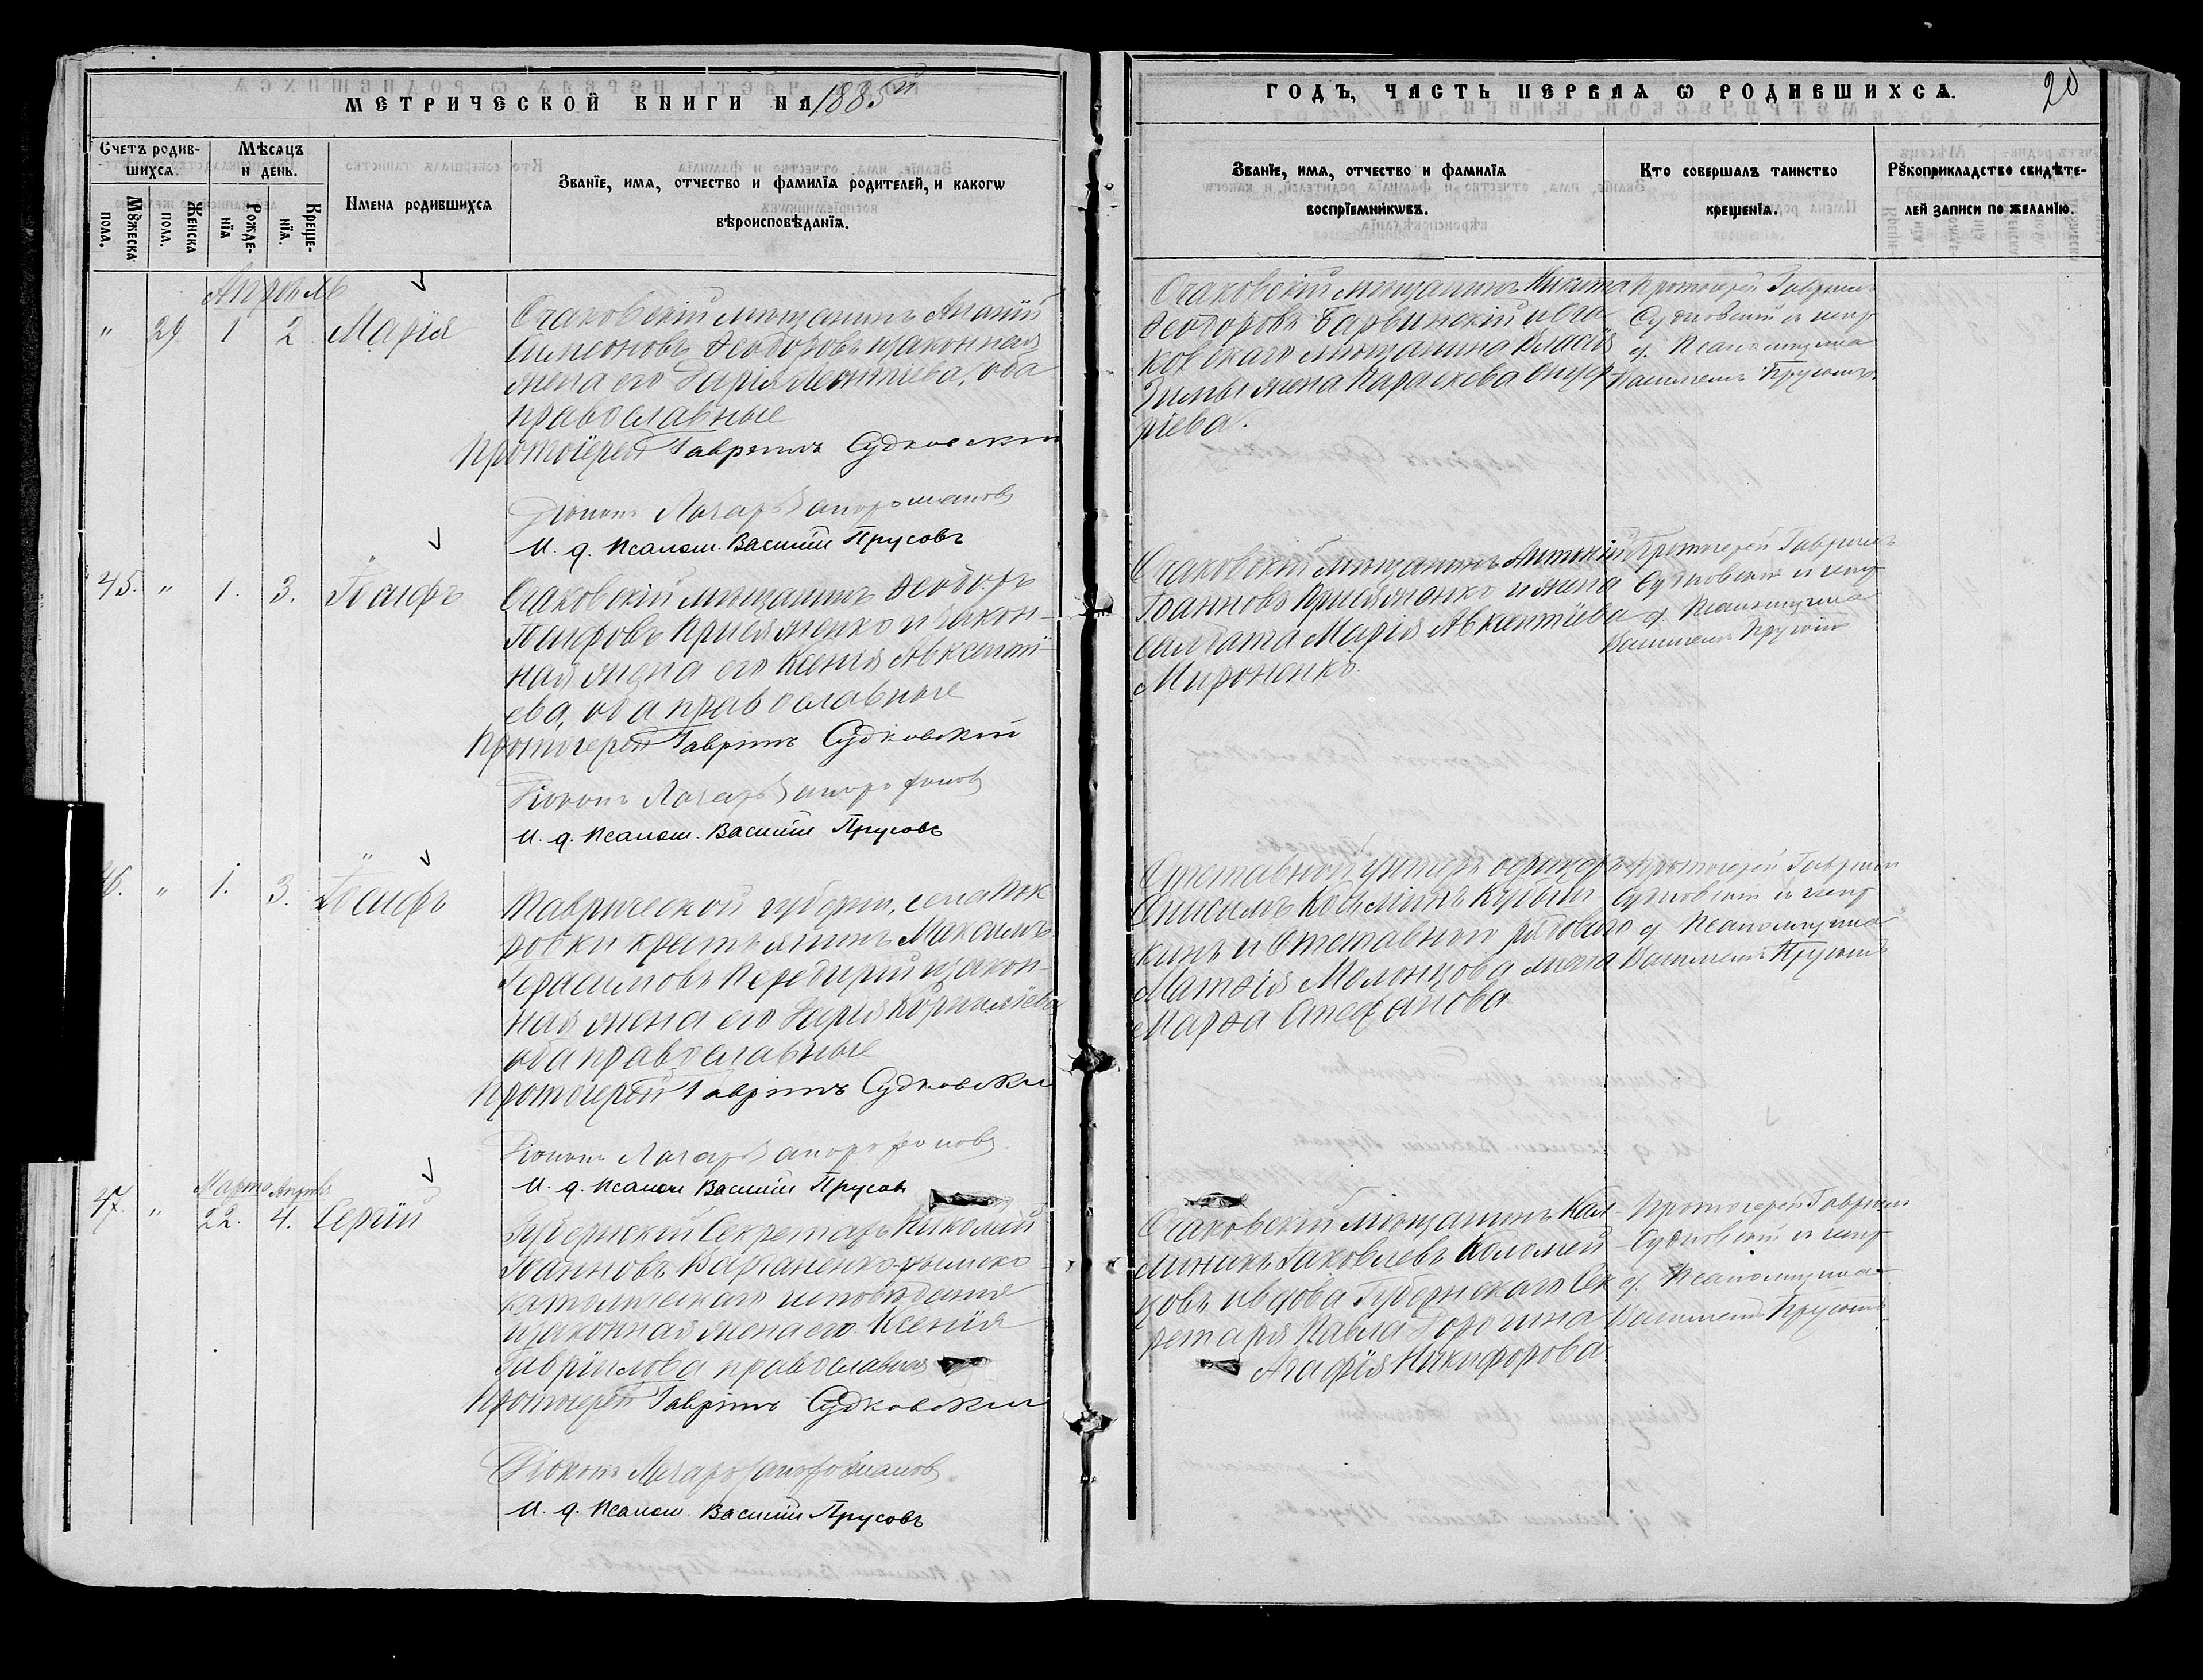 МЕТРИЧЕСКОЙ КНИГИ НА 1885й
Счетъ родив-
шихся.
Мѣсяцъ
и день.
Мꙋжеска
пола.
Женска
пола.
Рожде-
нїя
Креще-
нїя.
Имена родившихся
Званїе, имя, отчество и фамилїя родителей, и какогѡ
вѣроисповѣданїя.
Апрѣль
" 29 1 2 Марія
Очаковскій мѣщанинъ Ананій
Симеоновъ Ѳеодоровъ и законная
жена его Дарія Леонтіева, оба
православные
Протоіерей Гавріилъ Судковскій
Діаконъ Лазарь
И. д. Псалом. Василій Прусовъ
45. " 1. 3. Іосифъ
Очаковскій мѣщанинъ Ѳеодоръ
Іосифовъ Присяженко и закон-
ная жена его Ксенія Авксентї-
ева, оба православные
Протоіерей Гавріилъ Судковскій
Діаконъ Лазарь
И. д. Псалом. Василій Прусовъ
46. " 1. 3. Іосифъ
Таврической губерніи, села Пок
ровки крестьянинъ Максимъ
Герасимовъ Передирій и закон-
ная жена его Дарія Корнилїева
оба православные
Протоіерей Гавріилъ Судковскій
Діаконъ Лазарь
И. д. Псалом Василій Прусовъ
Мартъ Апрѣль
47. " 22. 4. Сергій
Губернскій Секретарь Николай
Іоанновъ римско-
католическаго исповѣданія
и законная жена его Ксенїя
Гаврїилова православная
Протоіерей Гавріилъ Судковскій
Діаконъ Лазарь
И. д. Псалом. Василій Прусовъ
ГОДЪ, ЧАСТЬ ПЕРВАЯ Ѡ РОДИВШИХСЯ.
20
Званїе, имя, отчество и фамилїя
воспрїемникѡвъ.
Кто совершалъ таинство
крещенїя.
Рꙋкоприкладство свидѣте-
лей записи по желанїю.
Очаковскій мѣщанинъ Никита
Ѳеодоровъ Барвинскій и Оча-
ковскаго мѣщанина Власія
Зимы жена Параскева Онуф-
ріева.
Протоіерей Гавріилъ
Судковскій съ испр
д. Псаломщика
Василіемъ Прусовымъ.
Очаковскій мѣщанинъ Антоній
Іоанновъ Присяженко и жена
солдата Марія Авксентїева
Мироненко.
Протоіерей Гавріилъ
Судковскій съ испр
д. Псаломщика
Василіемъ Прусовымъ
Отставной унтеръ офицеръ
Онисимъ Косьминъ
кинъ и Отставного рядового
Матѳія жена
Марѳа Стефанова
Протоіерей Гавріилъ
Судковскій съ испр
д. Псаломщика
Василіемъ Прусовымъ
Очаковскій мѣщанинъ Кал-
линикъ Іаковлевъ Коломей-
цовъ и вдова Губернскаго Сек
ретаря Павла Дорогина
Агафїя Никифорова
Протоіерей Гавріилъ
Судковскій съ испр
д. Псаломщика
Василіемъ Прусовымъ